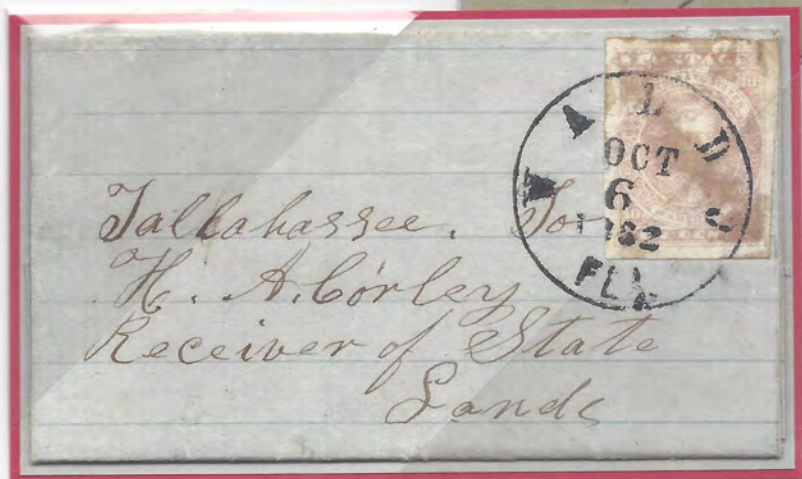 WALDO
OCT
6
1862
FLA
Tallahassee. To
H. A. Corley
Receiver of State
Lands